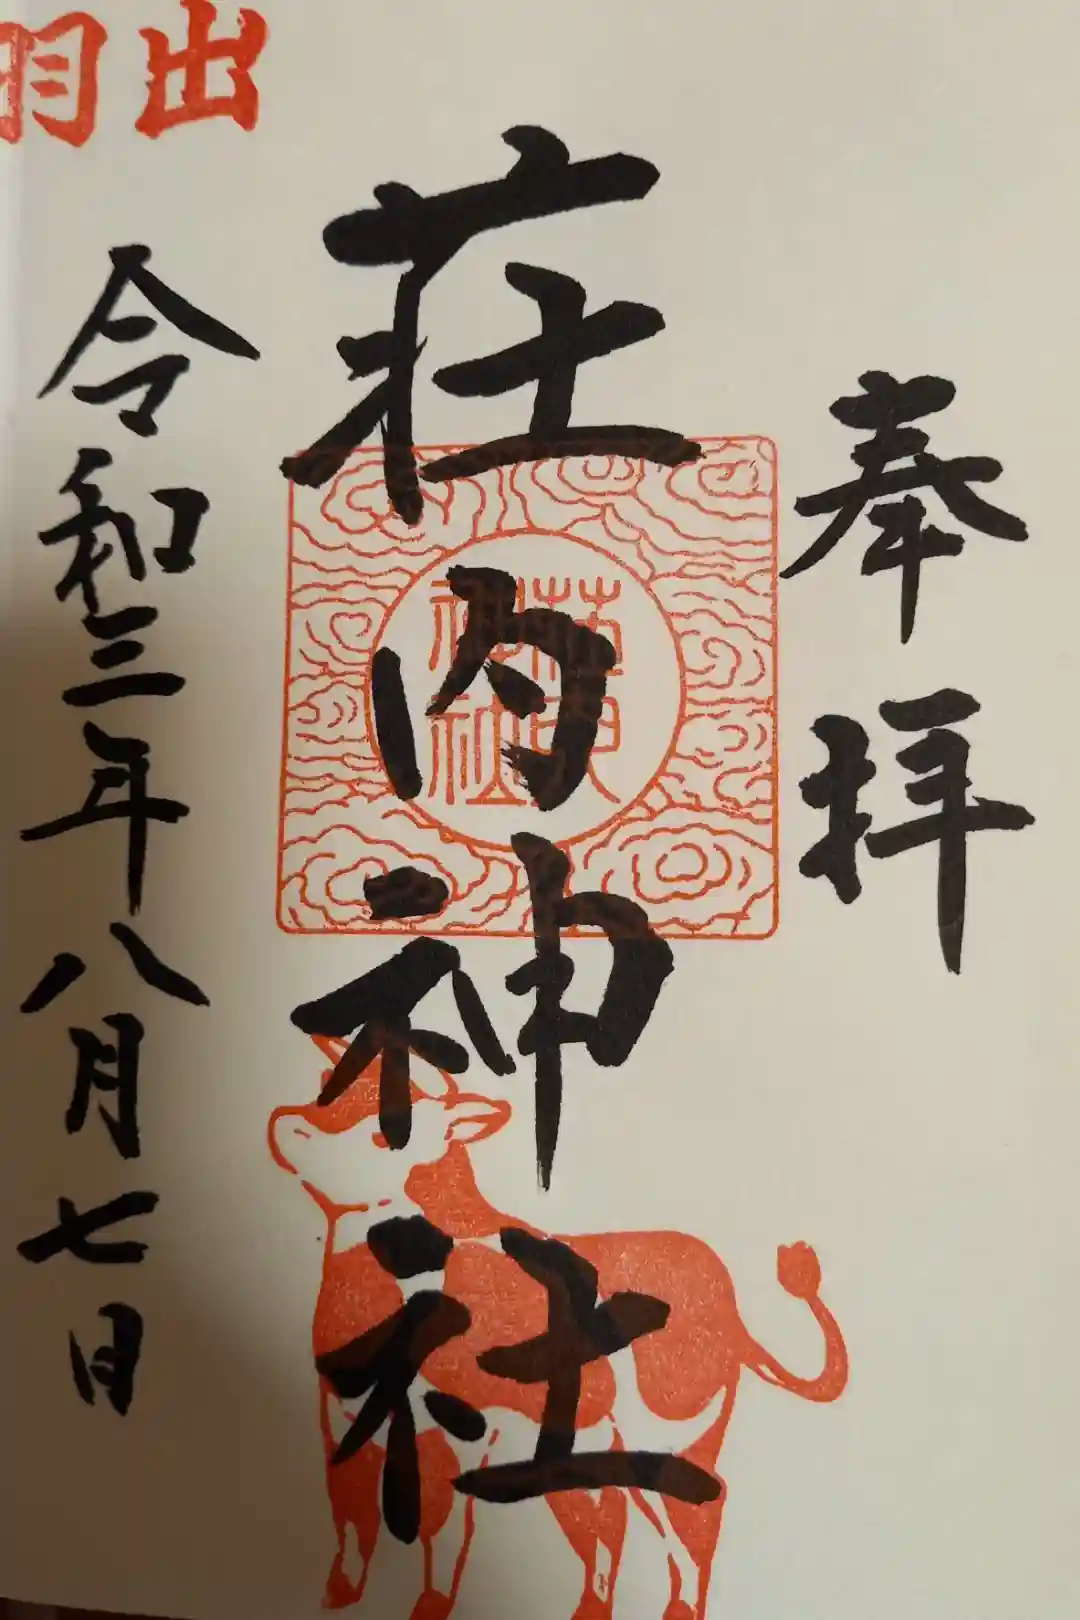 奉拝
荘内神社
荘内
神社
出羽
令和三年八月七日